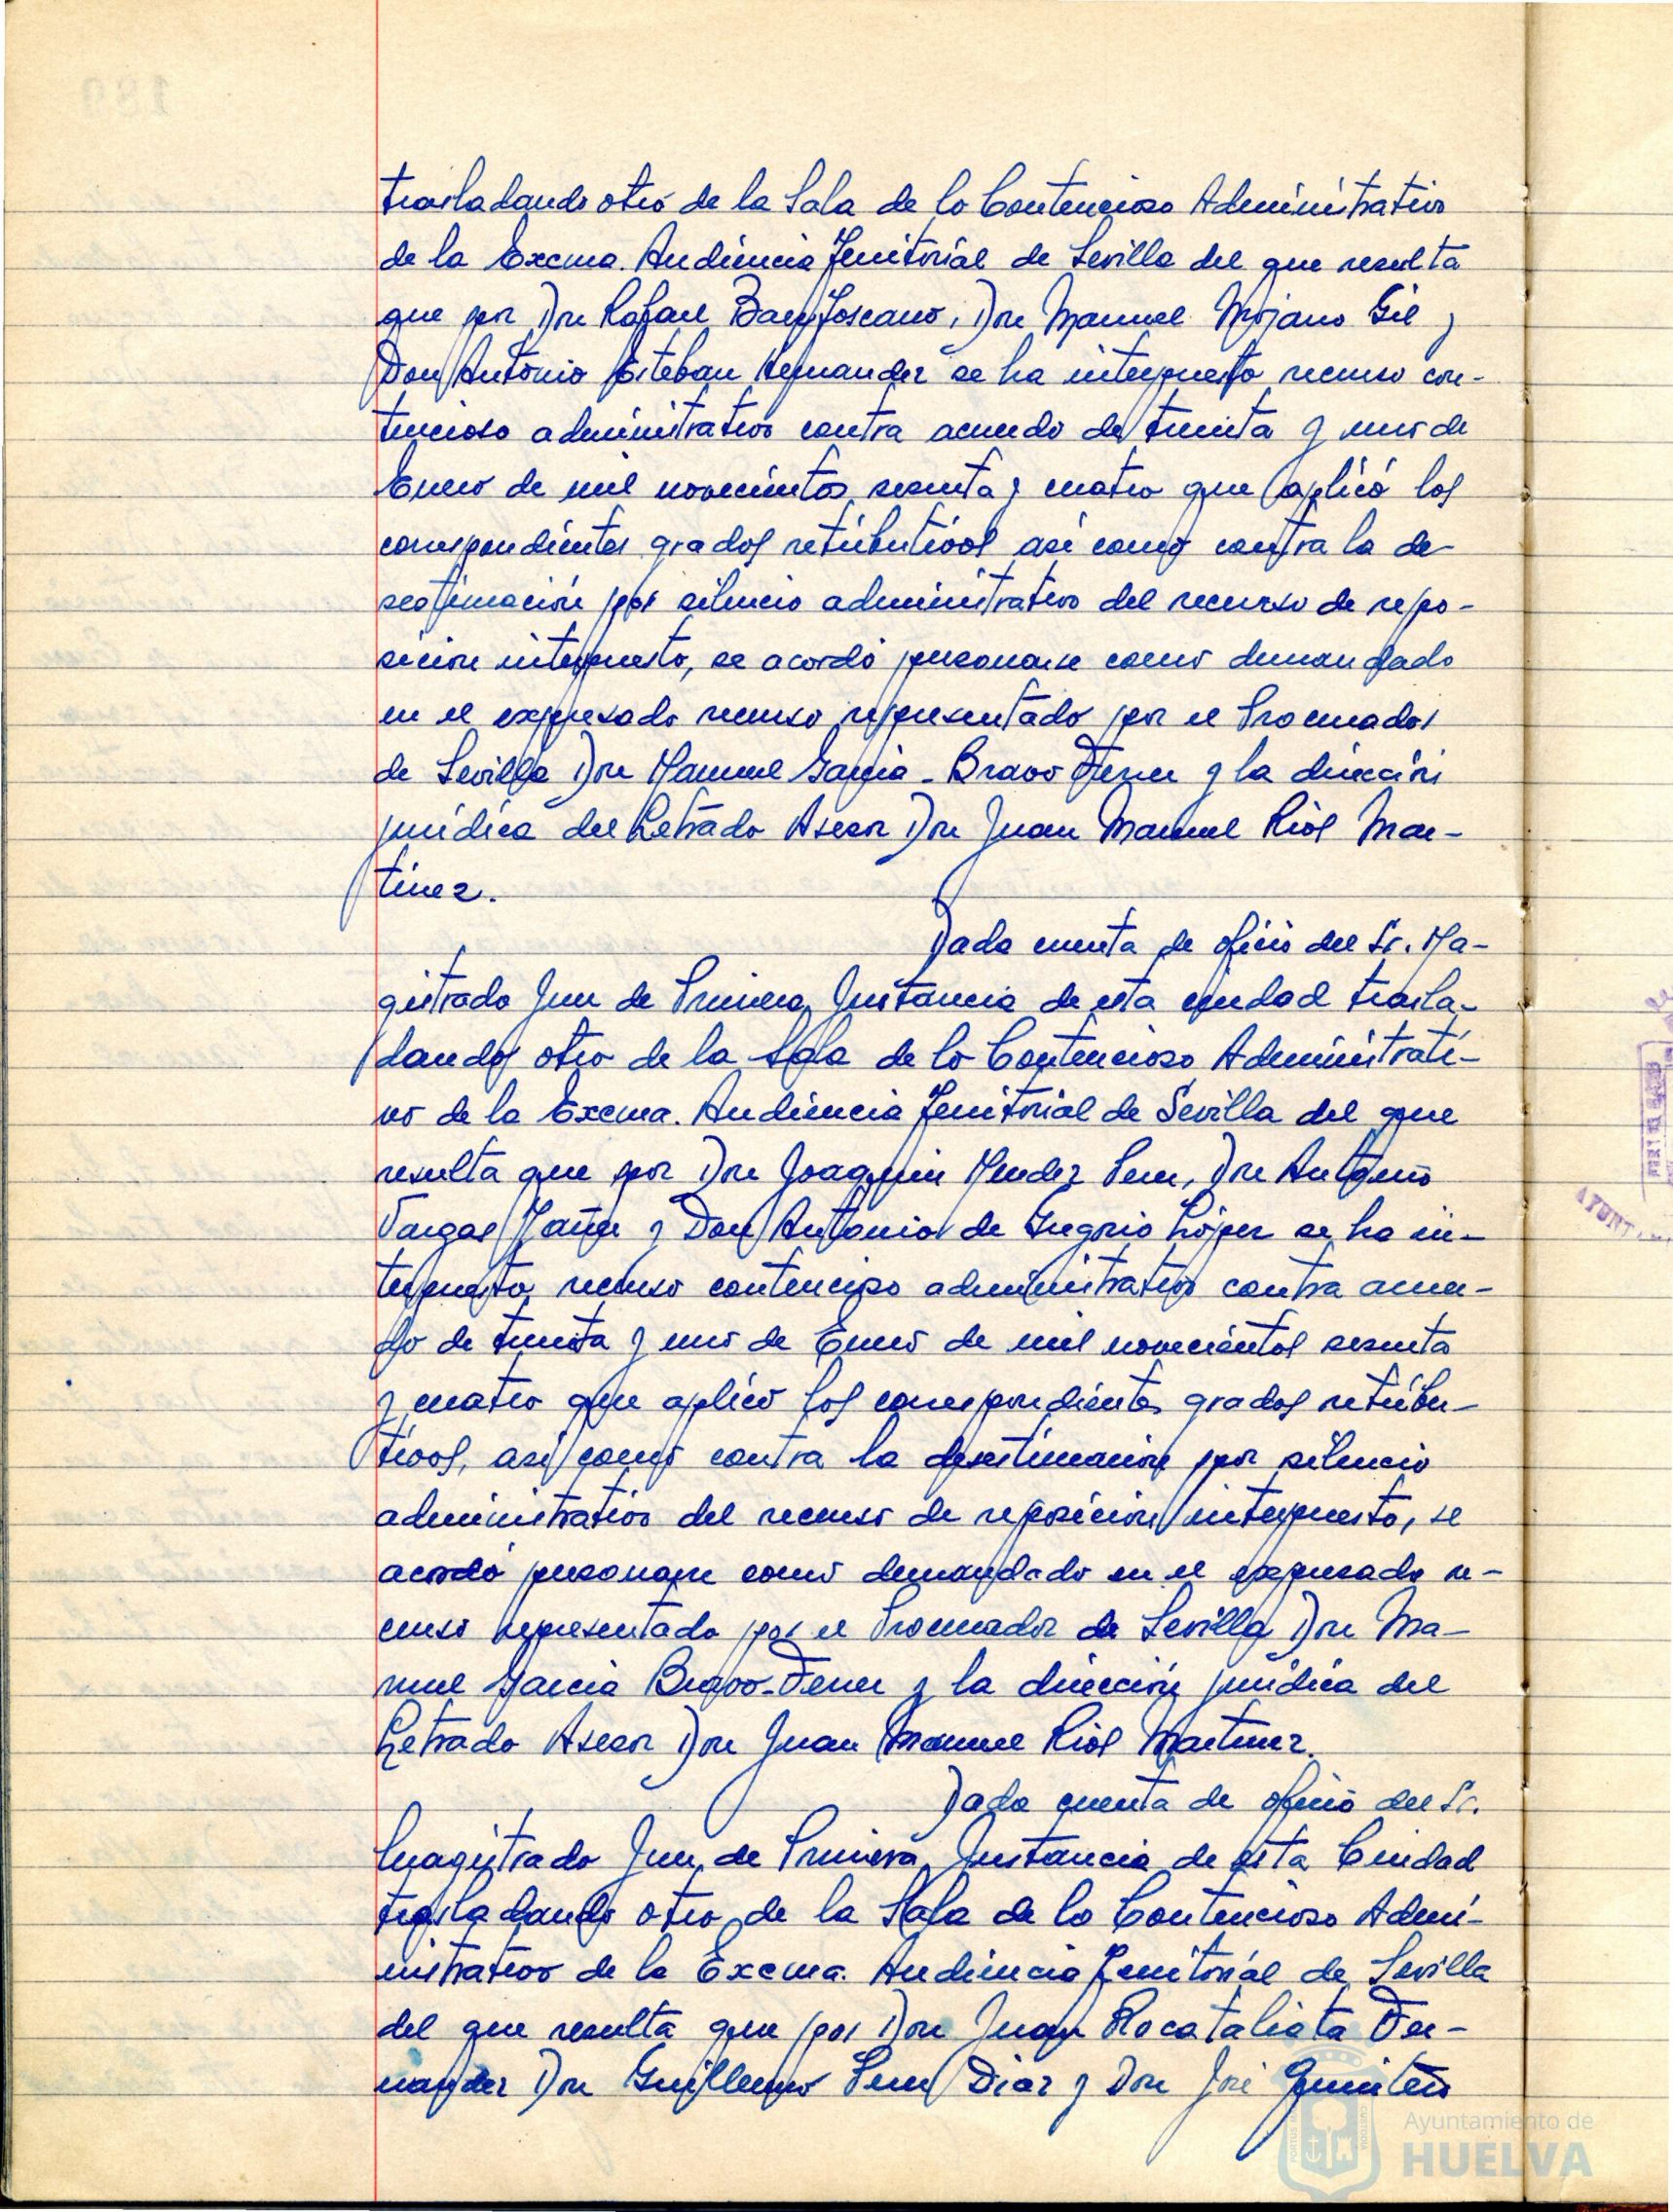 trasladando otro de la Sala de lo Contencioso Administrativo
de la Excma. Audiencia Territorial de Sevilla del que resulta
que por Don Rafael Baez Toscano, Don Manuel Mojano Gil y
Don Antonio Esteban Hernandez se ha interpuesto recurso con-
tencioso administrativo contra acuerdo de treinta y uno de
Enero de mil novecientos sesenta y cuatro que aplicó los
correspondientes grados retributivos asi como contra la de-
sestimación por silencio administrativo del recurso de repo-
sicion interpuesto, se acordó personarse como demandado
en el expresado recurso representado por el Procurador
de Sevilla Don Manuel Garcia-Bravo Ferrer y la dirección
juridica del Letrado Asesor Don Juan Manuel Riol Mar-
tinez.
Dada cuenta de oficio del Sr. Ma-
gistrado Juez de Primera Instancia de esta ciudad trasla-
dando otro de la Sala de lo Contencioso Administrati-
vo de la Excma. Audiencia Territorial de Sevilla del que
resulta que por Don Joaquin Mendez Perez, Don Antonio
Vargas y Don Antonio de Gregorio López se ha in-
terpuesto recurso contencioso administrativo contra acuer-
do de treinta y uno de Enero de mil novecientos sesenta
y cuatro que aplico los correspondientes grados retribu-
tivos, asi como contra la desestimacion por silencio
administrativo del recurso de reposicion interpuesto, se
acordó personarse como demandado en el expresado re-
curso representado por el Procurador de Sevilla Don Ma-
nuel Garcia Bravo-Ferrer y la dirección juridica del
Letrado Asesor Don Juan Manuel Riol Martinez.
Dada cuenta de oficio del Sr.
Magistrado Juez de Primera Instancia de esta Ciudad
trasladando otro de la Sala de lo Contencioso Admi-
nistrativo de la Excma. Audiencia Territorial de Sevilla
del que resulta que por Don Juan Rocataliata Fer-
nandez Don Guillermo Perez Diaz y Don José Quintero
Ayuntamiento de
HUELVA